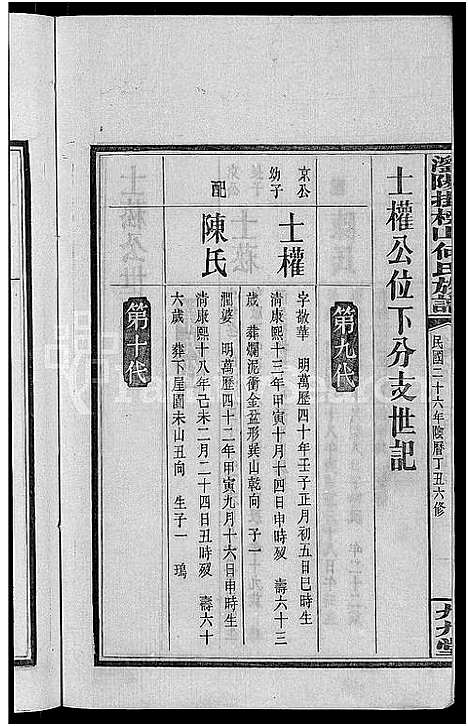 瀏陽掛榜山何氏族譜
民國二十六年陰曆丁丑六修
九九堂
士權公位下分支世記
第九代
京公幼子
士權
字敬華 明萬歷四十年壬子正月初五日巳時生
清康熙十三年甲寅十月十四日申時歿 壽六十三
歲 葬爛泥衝金盆形巽山乾向 子一
配
陳氏
潤婆 明萬歷四十二年甲寅九月十六日申時生
清康熙十八年己未二月二十四日丑時歿 壽六十
六歲 葬下屋園未山丑向 生子一 瑪
第十代